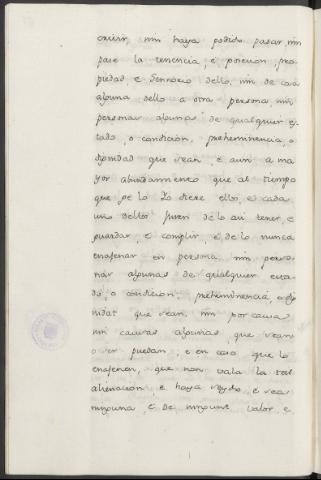 nin haya podido pasar, nin
pase la tenencia, e posecion, pro
piedad e Senorio dello, nin de cosa
alguna dello a otra persona, nin
personas algunas de qualquier es
tado, o condicion, preheminencia, o
dignidad que sean, e aun a ma
yor abundamiento que al tiempo
que ge lo Yo diere ello, e cada
uno dellos juren de lo asi tener, e
guardar, e complir, e de lo nunca
enagenar en persona, nin perso
nas algunas de qualquier esta
do, o condicion, preheminencia, o dig
nidat que sean, nin por causa
nin causas algunas, que sean
o ser puedan, e en caso que lo
enagenen, que non vala la tal
alienacion, e haya seydo, e sea
ninguna, e de ningunt valor, e